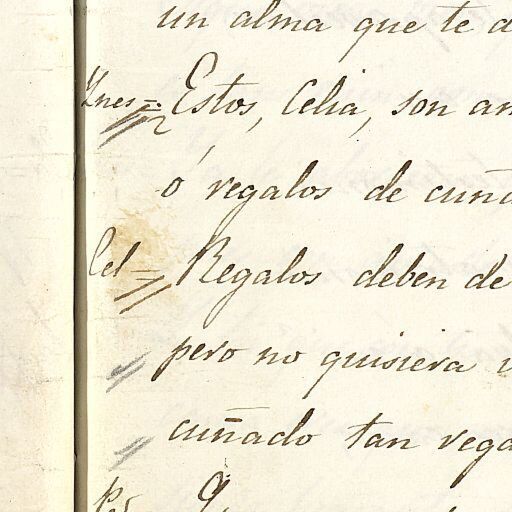 un alma que te a
Ynes=. Estos, Celia, son am
ó regalos de cuña
Cel= Regalos deben de
pero no quisiera
cuñado tan rega